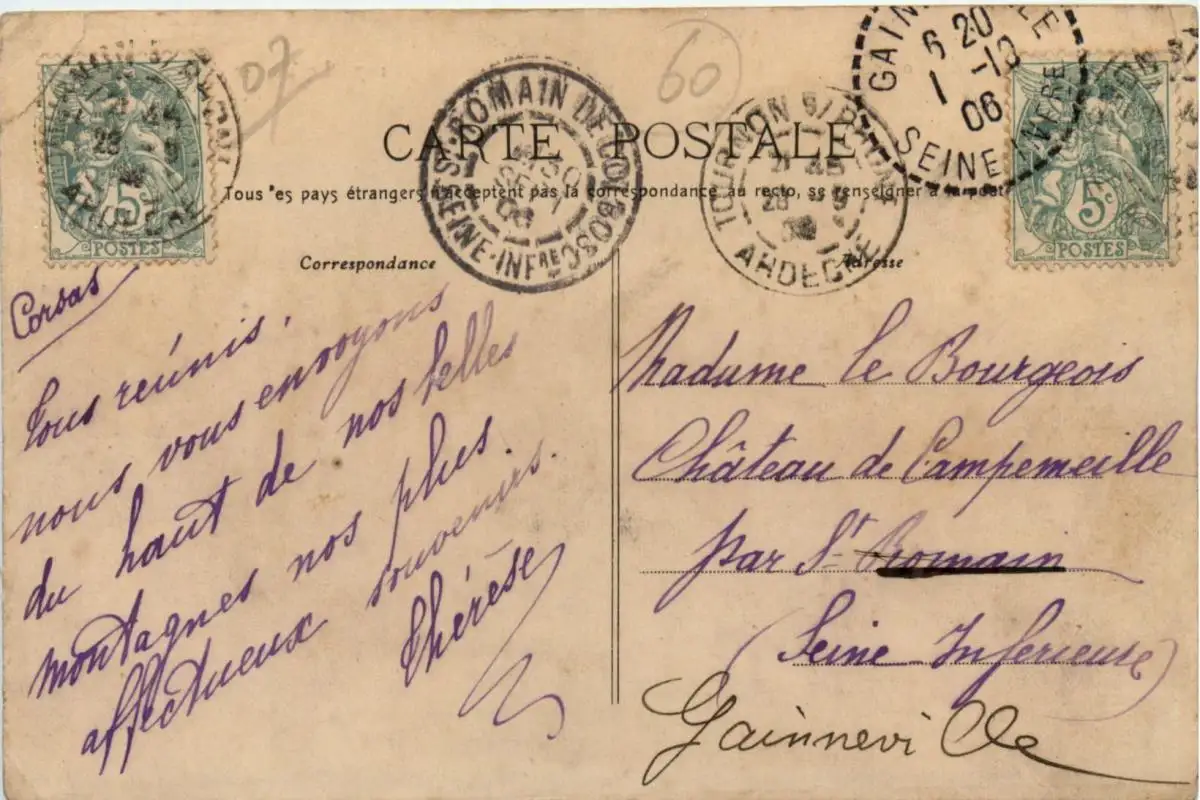 07
60
CARTE POSTALE
Tous les pays étrangers n'acceptent pas la correspondance au recto, se renseigner à la poste
Correspondance
Adresse
5c
POSTES
5c
POSTES
ARDECHE
ST-ROMAIN DE COLBOSC
SEINE-INFRE
TOURNON S/ RHONE
ARDECHE
GAINNEVILLE
6 20
1 -10
06
SEINE INFRE
Corsas
Tous réunis,
nous vous envoyons
du haut de nos belles
montagnes nos plus
affectueux souvenirs.
Thérèse
Madame le Bourgeois
Château de Campemeille
par St Romain
(Seine Inferieure)
Gainneville